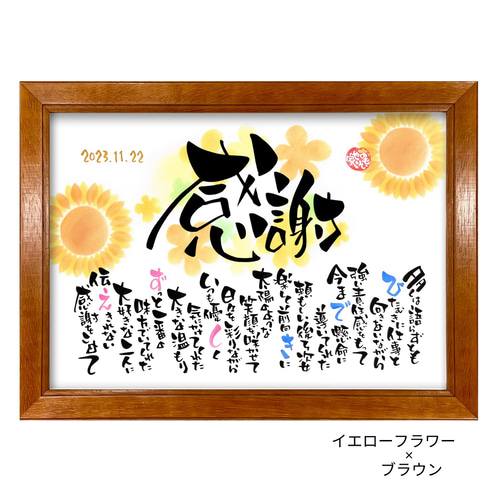 2023.11.22
感謝
多くは語らずとも
ひたむきに仕事と
向き合いながら
強い責任感をもって
今まで懸命に
導いてくれた
頼もしい後ろ姿
楽しく前向きに
太陽のような
笑顔を咲かせて
日々を彩りながら
いつも優しく
気にかけてくれた
大きな温もり
ずっと一番の
味方でいてくれた
大好きな二人に
伝えきれない
感謝をこめて
イエローフラワー
×
ブラウン